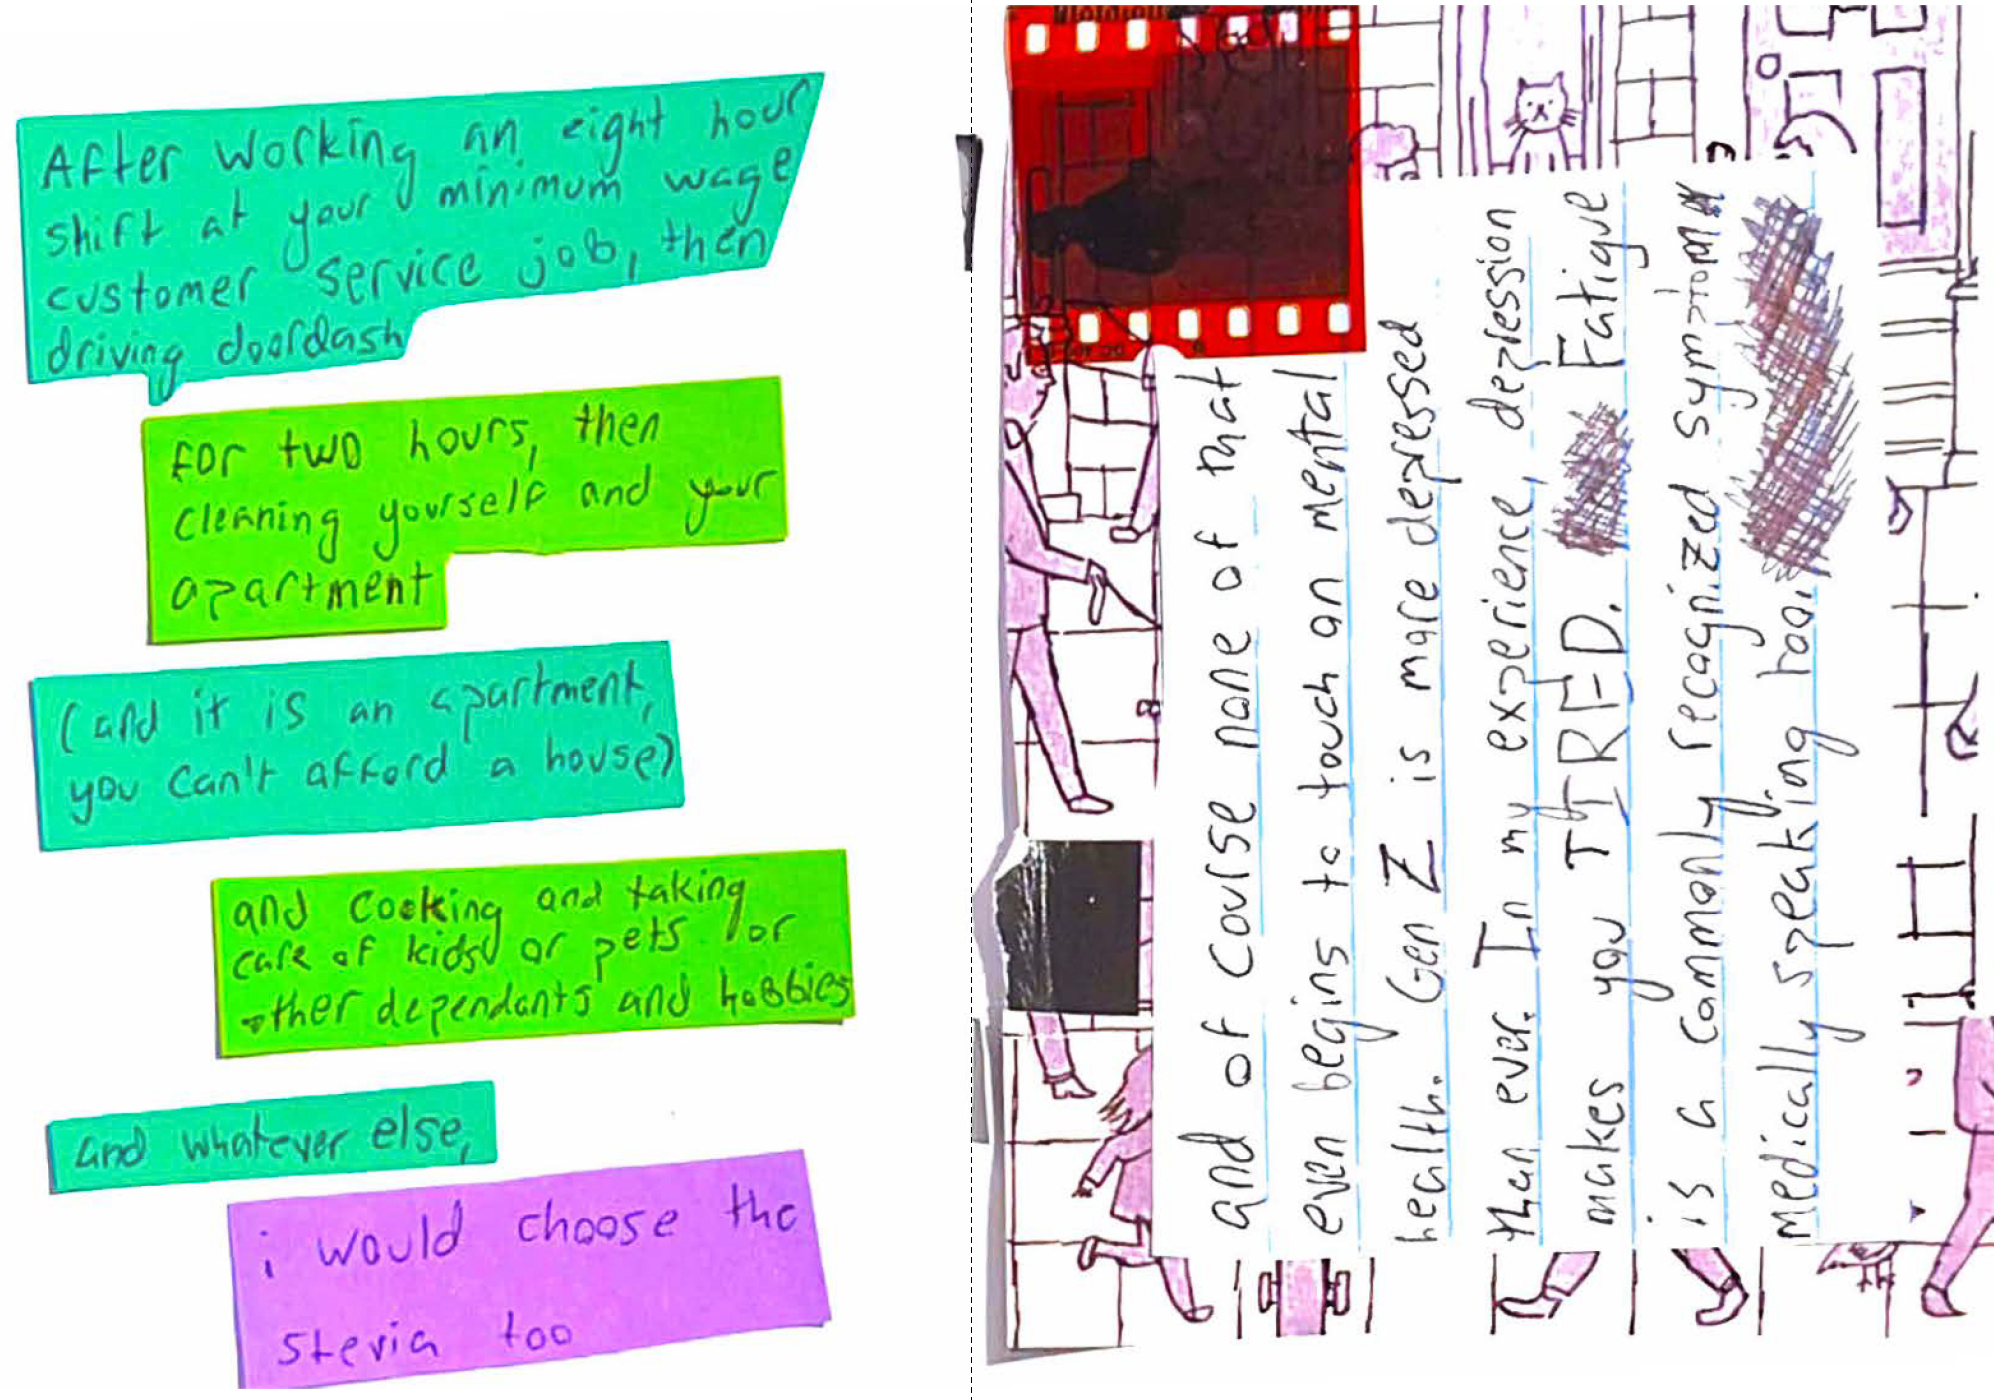 After working an eight hour
shift at your minimum wage
customer service job, then
driving doordash
for two hours, then
cleaning yourself and your
apartment
(and it is an apartment,
you can't afford a house)
and cooking and taking
care of kids or pets or
other dependants and hobbies
and whatever else,
i would choose the
stevia too
and of course none of that
even begins to touch on mental
health. Gen Z is more depressed
than ever. In my experience, depression
makes you TIRED. Fatigue
is a commonly recognized symptom
medically speaking too.